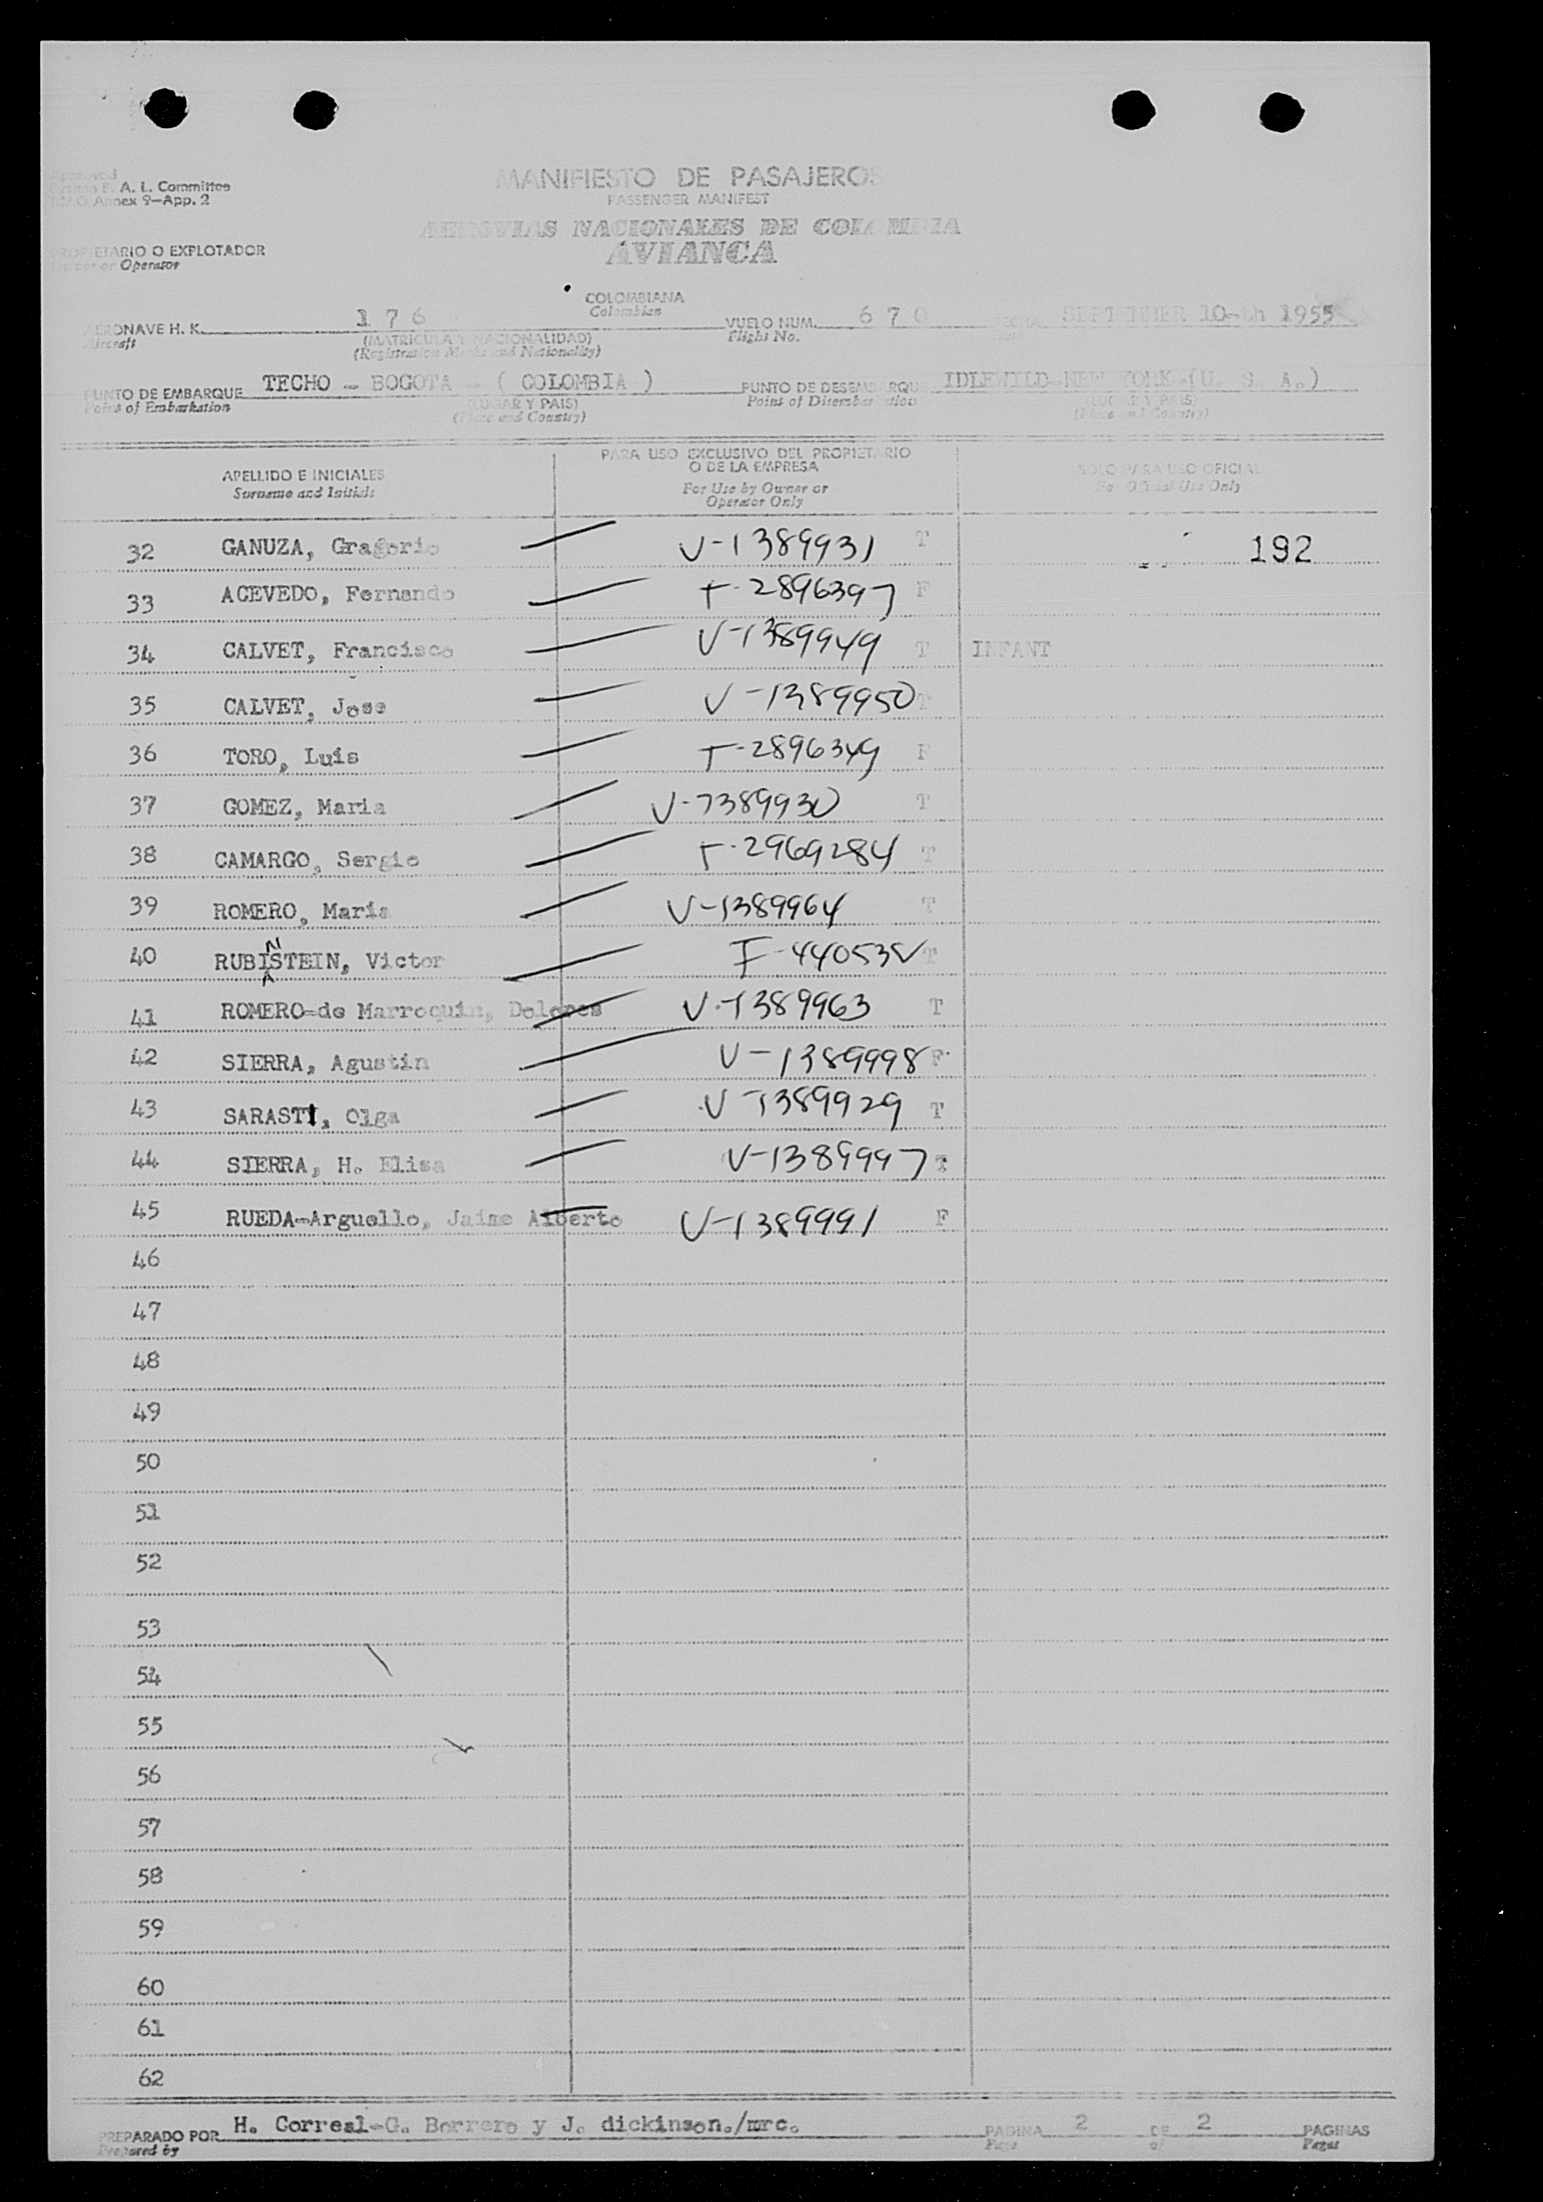 MANIFIESTO DE PASAJEROS
PASSENGER MANIFEST
A. I. Committee
Annex 9-App. 2
AEROVIAS NACIONALES DE COLOMBIA
AVIANCA
PROPIETARIO O EXPLOTADOR
Owner or Operator
COLOMBIANA
Colombian
AERONAVE H. K. 176 VUELO NUM. 670 SEPTEMBER 10-th 1955
Aircraft (MATRICULA Y NACIONALIDAD) Flight No.
(Registration Marks and Nationality)
PUNTO DE EMBARQUE TECHO - BOGOTA - ( COLOMBIA ) PUNTO DE DESEMBARQUE IDLEWILD-NEW YORK-(U. S. A.)
Point of Embarkation (LUGAR Y PAIS) Point of Disembarkation (LUGAR Y PAIS)
(Place and Country) (Place and Country)
APELLIDO E INICIALES PARA USO EXCLUSIVO DEL PROPIETARIO O DE LA EMPRESA SOLO PARA USO OFICIAL
Surname and Initials For Use by Owner or Operator Only For Official Use Only
32 GANUZA, Gragorio V-1389931 T 192
33 ACEVEDO, Fernando T-2896397 F
34 CALVET, Francisco V-1389949 T INFANT
35 CALVET, Jose V-1389950 T
36 TORO, Luis T-2896349 F
37 GOMEZ, Maria V-7389930 T
38 CAMARGO, Sergio T-2969284 T
39 ROMERO, Maria V-1389964 T
40 RUBINSTEIN, Victor I-440535V T
41 ROMERO-de Marroquin, Dolores V-1389963 T
42 SIERRA, Agustin V-1389998 F
43 SARASTI, Olga V-1389929 T
44 SIERRA, H. Elisa V-1389997 T
45 RUEDA-Arguello, Jaime Alberto V-1389991 F
46
47
48
49
50
51
52
53
54
55
56
57
58
59
60
61
62
PREPARADO POR H. Correal-G. Borrero y J. dickinson./mrc. PAGINA 2 DE 2 PAGINAS
Prepared by Page of Pages